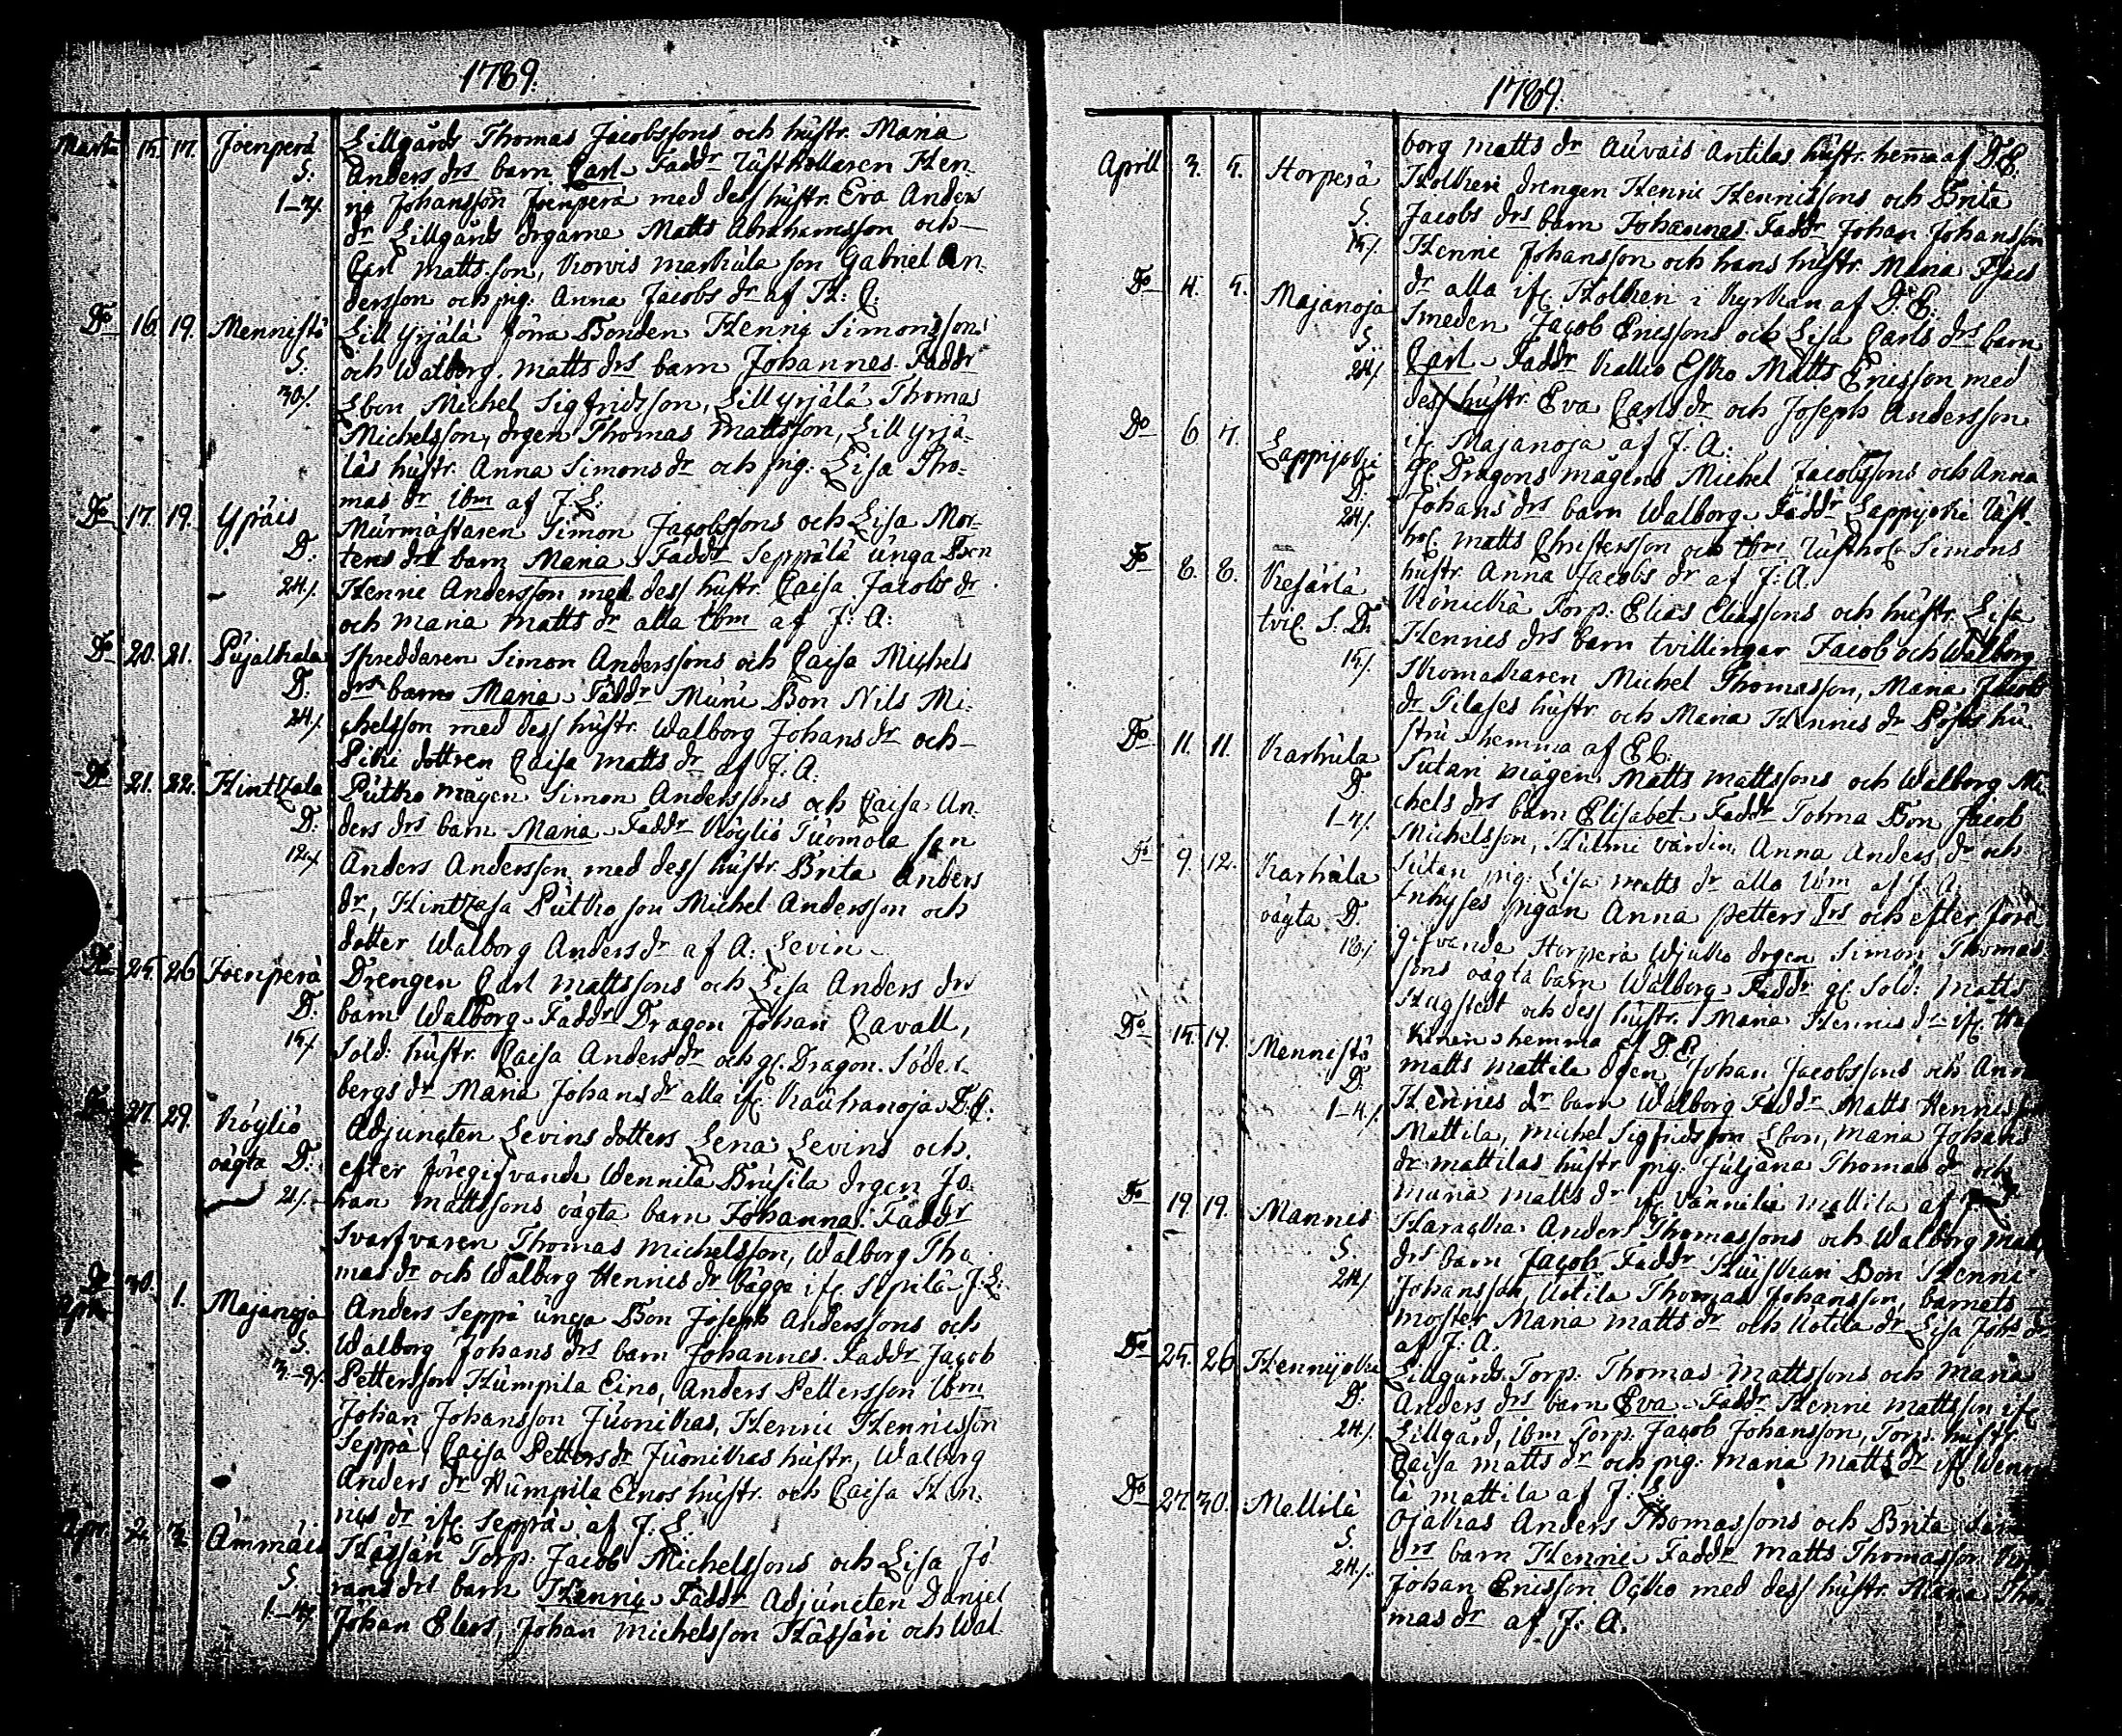 1789.
Martii 15. 17. Joenperä Lillgårds Thomas Jacobssons och hustr. Maria
S. Anders drs barn Carl. Faddr Rusthollaren Hen-
1-4/. ric Johansson Joenperä med dess hustr. Eva Anders
dr Lillgårds drgarne Matts Abrahamsson och
Carl Mattsson, Korvis Markula son Gabriel An-
dersson och pig: Anna Jacobs dr af H: C:
Do 16. 19. Mennistö Lill Yrjälä förra Bonden Henric Simonssons
S. och Walborg Matts drs barn Johannes. Faddr
30/. Ebon Michel Sigfridsson, Lill yrjälä Thomas
Michelsson, drgen Thomas Mattsson, Lill yrjä-
läs hustr. Anna Simons dr och pig: Lisa Tho-
mas dr ibm af J: L:
Do 17. 19. Ypäis Murmästaren Simon Jacobssons och Lisa Mor-
D. tens drs barn Maria. Faddr Seppälä unga Bon
24/. Henric Andersson med dess hustr. Caisa Jacobs dr
och Maria Matts dr alla ibm af J: A:
Do 20. 21. Pujalkala Skreddaren Simon Anderssons och Caisa Michels
D. drs barn Maria. Faddr Muni Bon Nils Mi-
24/. chelsson med dess hustr. Walborg Johans dr och
Piki dottren Caisa Matts dr af J: A:
Do 21. 22. Hinttala Putko mågen Simon Anderssons och Caisa An-
D. ders drs barn Maria. Faddr Köyliö Tuomola son
12/. Anders Andersson med dess hustr. Brita Anders
dr, Hinttasa Putko son Michel Andersson och
dotter Walborg Anders dr af A: Levin
Do 25. 26 Joenperä Drengen Carl Mattssons och Lisa Anders drs
D. barn Walborg. Faddr Dragon Johan Cavall,
15/. Sold: hustr. Caisa Anders dr och gl. Dragon. Söder-
bergs dr Maria Johans dr alla ifr. Kauhanoja D: E:
Do 27. 29. Köyliö Adjuncten Levins dotters Lena Levins och
oägta D: efter föregifvande Wennilä Brusila drgen Jo-
21/. han Mattssons oägta barn Johanna. Faddr
Svarfvaren Thomas Michelsson, Walborg Tho
mas dr och Walborg Hennics dr bägge ifr. Sepilä J: L:
Do 30. Apr. 1. Majanoja Anders Seppä unga Bon Joseph Anderssons och
S. Walborg Johans drs barn Johannes. Faddr Jacob
3.-9/. Pettersson Humpila Eino, Anders Pettersson ibm
Johan Johansson Juonikas, Henric Henricsson
Seppä, Caisa Petters dr Juonikas hustr., Walborg
Anders dr Humpila Einos hustr. och Caisa Hen-
rics dr ifr. Seppä af J: L:
Apr. 2. 3. Ämmäis Hässän Torp: Jacob Michelssons och Lisa Jö
S. rans drs barn Henric. Faddr Adjuncten Daniel
1.-4/. Johan Elers, Johan Michelsson Hässäri och Wal
1789.
borg Matts dr Auvais Antilas hustr. hemma af D: E.
Aprill 3. 5. Horperä Holkeri drengen Henric Henricssons och Brita
S. Jacobs drs barn Johannes. Faddr Johan Johansson
15/. Henric Johansson och hans hustr. Maria
dr alla ifr. Holkeri i Kyrkan af D: E.
Do 4. 5. Majanoja Smeden Jacob Ericssons och Lisa Carls drs barn
S. Carl. Faddr Kallio Esko Matts Ericsson med
24/. dess hustr. Eva Carls dr och Joseph Andersson
ifr. Majanoja af J: A:
Do 6 7. Lappijoki gl. Dragons mågens Michel Jacobssons och Anna
D. Johans drs barn Walborg. Faddr Lappijoki Rust-
24/. hol. Matts Christersson och ibm Rusthol. Simons
hustr. Anna Jacobs dr af J: A.
Do 8. 8. Kesärlä Könickä Torp: Elias Eliassons och hustr. Lisa
tvil. S. D. Henrics drs barn tvillingar Jacob och Walborg
15/. Skomakaren Michel Thomasson, Maria Jacobs
dr hustr. och Maria Henrics dr hu
stru hemma af
Do 11. 11. Karhula Sutari mågen Matts Mattssons och Walborg Mi
D. chels drs barn Elisabet. Faddr Tolma Bon Jacob
1-4/. Michelsson, Hulmi värdin Anna Anders dr och
Sutari pig: Lisa Matts dr alla ibm af J: A.
Do 9. 12. Karhula Inhyses pigan Anna Petters drs och efter före
oägta D. gifvande Horperä Wjuko drgen Simon Thomas
18/. sons oägta barn Walborg. Faddr gl. Sold: Matts
Hagstedt och dess hustr. Maria Henrics dr ifr.
hemma af D: E.
Do 15. 17. Mennistö Matts Mattila dgen Johan Jacobssons och Ann
D. Henrics dr barn Walborg Faddr Matts Henricss
1-4/. Mattila, Michel Sigfridsson Ebon, Maria Johans
dr Mattilas hustr. pig: Juljana Thomas dr och
Maria Matts dr ifr. Vännilä Mattila af J:
Do 19. 19. Mannis Haracka Anders Thomassons och Walborg Matts
S. drs barn Jacob Faddr Huiskan Bon Henric
24/. Johansson, Uotila Thomas Johansson, barnets
moster Maria Matts dr och Uotila dr Lisa Johs dr
af J: A.
Do 25. 26. Hennijoki Lillgårds Torp: Thomas Mattssons och Maria
D. Anders drs barn Eva. Faddr Henric Mattsson ifr
24/. Lillgård, ibm Torp: Jacob Johansson, Torp: hustr.
Caisa Matts dr och pig: Maria Matts dr ifr Wenni
lä Mattila af J: L:
Do 27. 30. Mellilä Ojakas Anders Thomassons och Brita
S. drs barn Henric. Faddr Matts Thomasson
24/. Johan Ericsson Ocko med dess hustr. Maria Tho
mas dr af J: A.